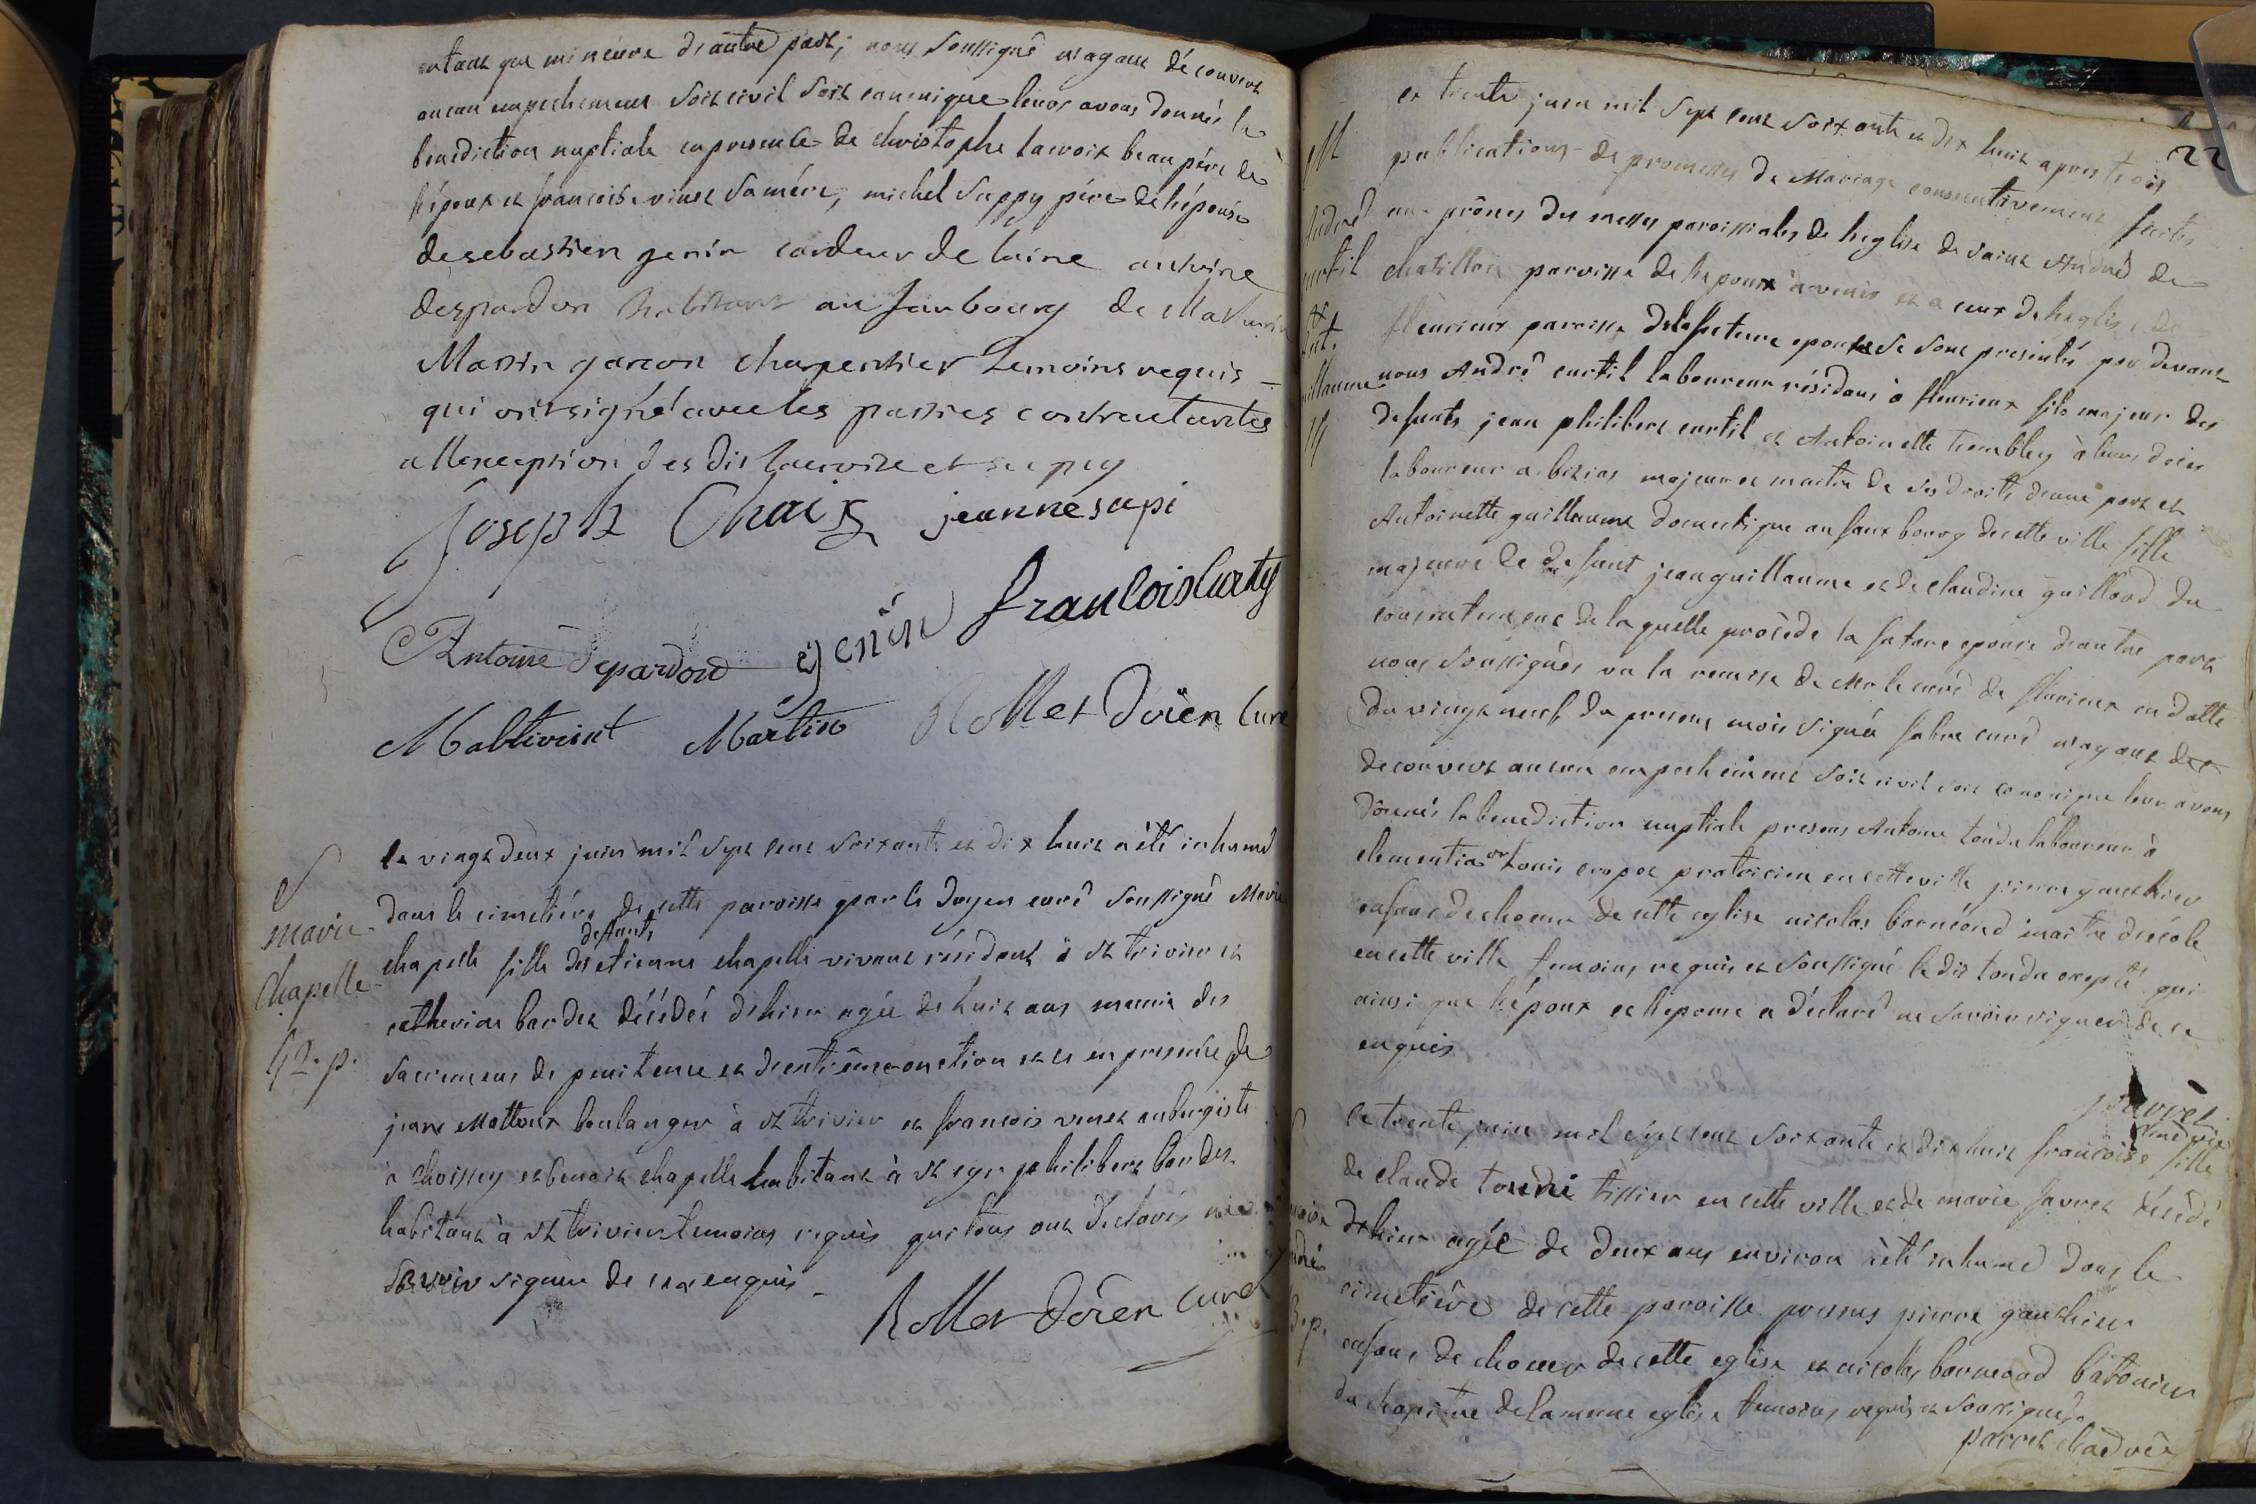 entant que mineure d'autre part; nous soussigné n'ayant découvert
aucun empechement soit civil soit canonique leurs avons donnés la
benediction nuptiale en presence de christophe lacroix beau pére de
l'époux et francoise vinet sa mére, michel sappy pére de l'épouse
de sebastien genin cardeur de laine antoine
despardon habitant au faubourg de Mathurin
Martin garcon charpentier temoins requis
qui ont signé avec les parties contractantes
a l'exception des dis lacroix et sapy
Joseph Chaix jeanne sapi
Antoine Depardon genin francois Curty
Mablivirint Martin Rollet Doïen Curé
S
marie
chapelle
4#. p.
le vingt deux juin mil sept cent soixante et dix huit a été inhumé
dans le cimetiére de cette paroisse par le doyen curé soussigné Marie
defunts
chapelle fille des etienne chapelle vivant résidant à st trivier et
catherine bardet décédée d'hier agée de huit ans munie des
sacremens de penitence et d'extréme onction et ce en presence de
jean Mattoux boulanger à st trivier et francois venet aubergiste
à choissey et benoit chapelle habitant à st cyr philibert bardet
habitant à st trivier temoins requis qui tous ont déclarés ne
savoir signer de ce enquis
Rollet doïen curé
22
M
André
curtil
&
ant.
guillaume
le trente juin mil sept cent soixante et dix huit apres trois
publications de promesses de Mariage consecutivement faites
aux prônes des messes paroissiales de l'eglise de saint André de
chatillon paroisse de l'epoux à venir et a ceux de l'eglise de
fleurieux paroisse de la future epouse se sont presentés par devant
nous André curtil laboureur résidant à fleurieux fils majeur des
defunts jean philibert curtil et Antoinette Trembley à leurs deces
laboureur a biziat majeur et maitre de ses droits d'une part et
Antoinette guillaume domestique au faux bourg de cette ville fille
majeure de defunt jean guillaume et de claudine guillard du
consentement de laquelle procède la future epouse d'autre part
nous soussignés vu la remise de Mr le curé de flurieux en datte
du vingt neuf du present mois signée fabre curé n'ayant
decouvert aucun empechement soit civil soit canonique leur avons
donnés la benediction nuptiale presens Antoine tondu laboureur à
clementia Louis crapet praticien en cette ville pierre gauthier
enfant de choeur de cette eglise nicolas barneoud maitre d'ecole
en cette ville temoins requis et soussigné le dit tondu exepté qui
ainsi que l'époux et l'epouse a déclaré ne savoir signer de ce
enquis
B.p.
le trente juin mil sept cent soixante et dix huit francoise fille
de claude tondu tissier en cette ville et de marie favret décédé
d'hier agée de deux ans environ a été inhumé dans le
cimetiére de cette paroisse presens pierre gauthier
enfant de choeur de cette eglise et nicolas barneoud bâtonier
du chapitre de la meme eglise temoins requis et soussignés
parret